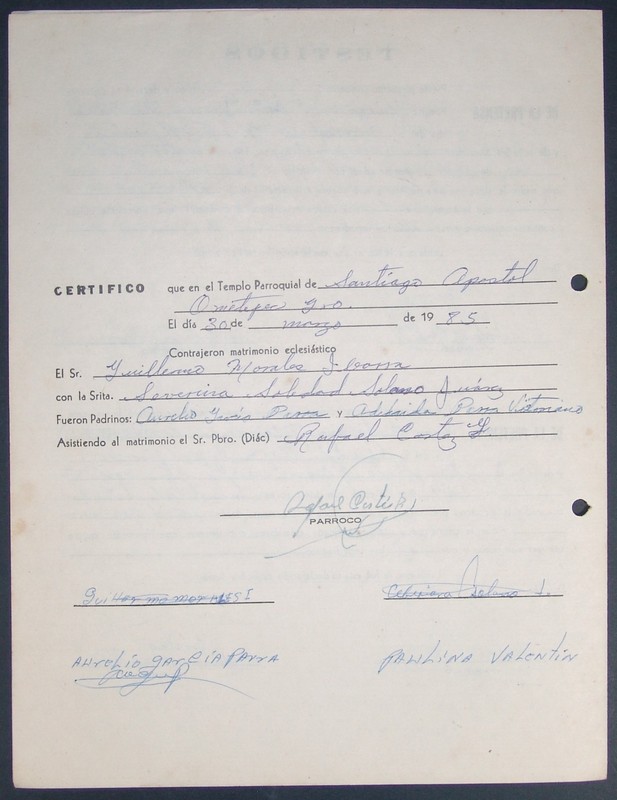 CERTIFICO que en el Templo Parroquial de Santiago Apostol
Ometepec Gro.
El día 30 de marzo de 19 85
Contrajeron matrimonio eclesiástico
El Sr. Guillermo Morales Ibarra
con la Srita. Severina Soledad Solano Juárez
Fueron Padrinos: Aurelio García Parra y Parra Vitorniano
Asistiendo al matrimonio el Sr. Pbro. (Diác) Rafael Cortez G
Rafael Cortez
PARROCO
Guillermo morales I Solano J.
AURELIO GARCIA PARRA PAULINA VALENTIN